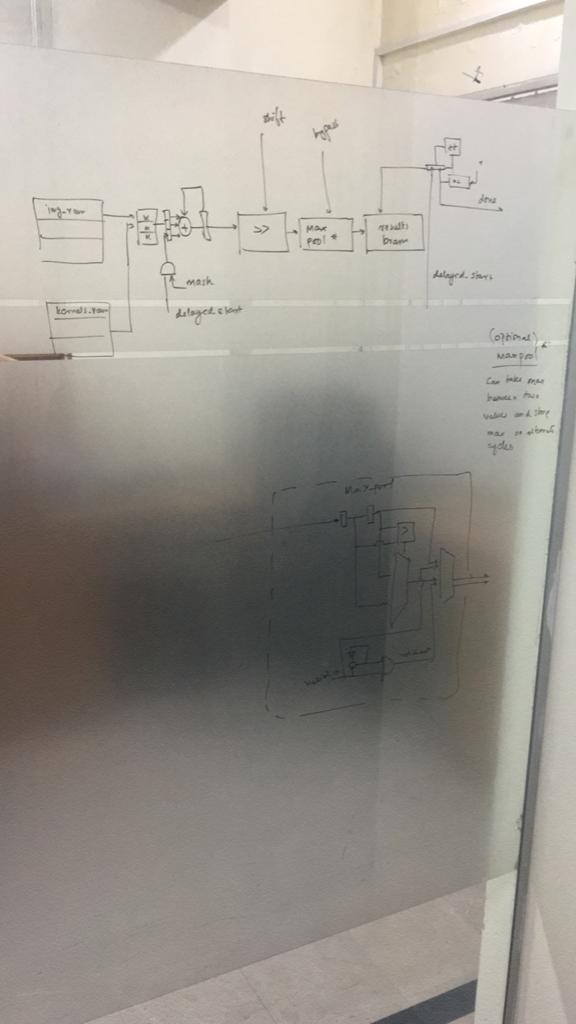 shift
bypass
++
done
img_ram
x
x
x
+
>>
Max
pool *
results
bram
mask
delayed_start
delayed_start
kernels_ram
(optional) *
Maxpool
Can take max
between two
values and store
max on alternate
cycles
Max_pool
>